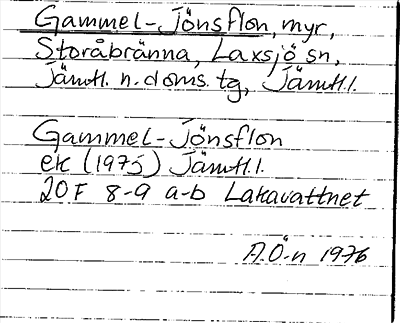 Gammel-Jönsflon, myr,
Storåbränna, Laxsjö sn,
Jämtl. n. doms. tg, Jämtl. l.
Gammel-Jönsflon
ek (1975) Jämtl. l.
20 F 8-9 a-b Lakavattnet
A.Ö-n 1976